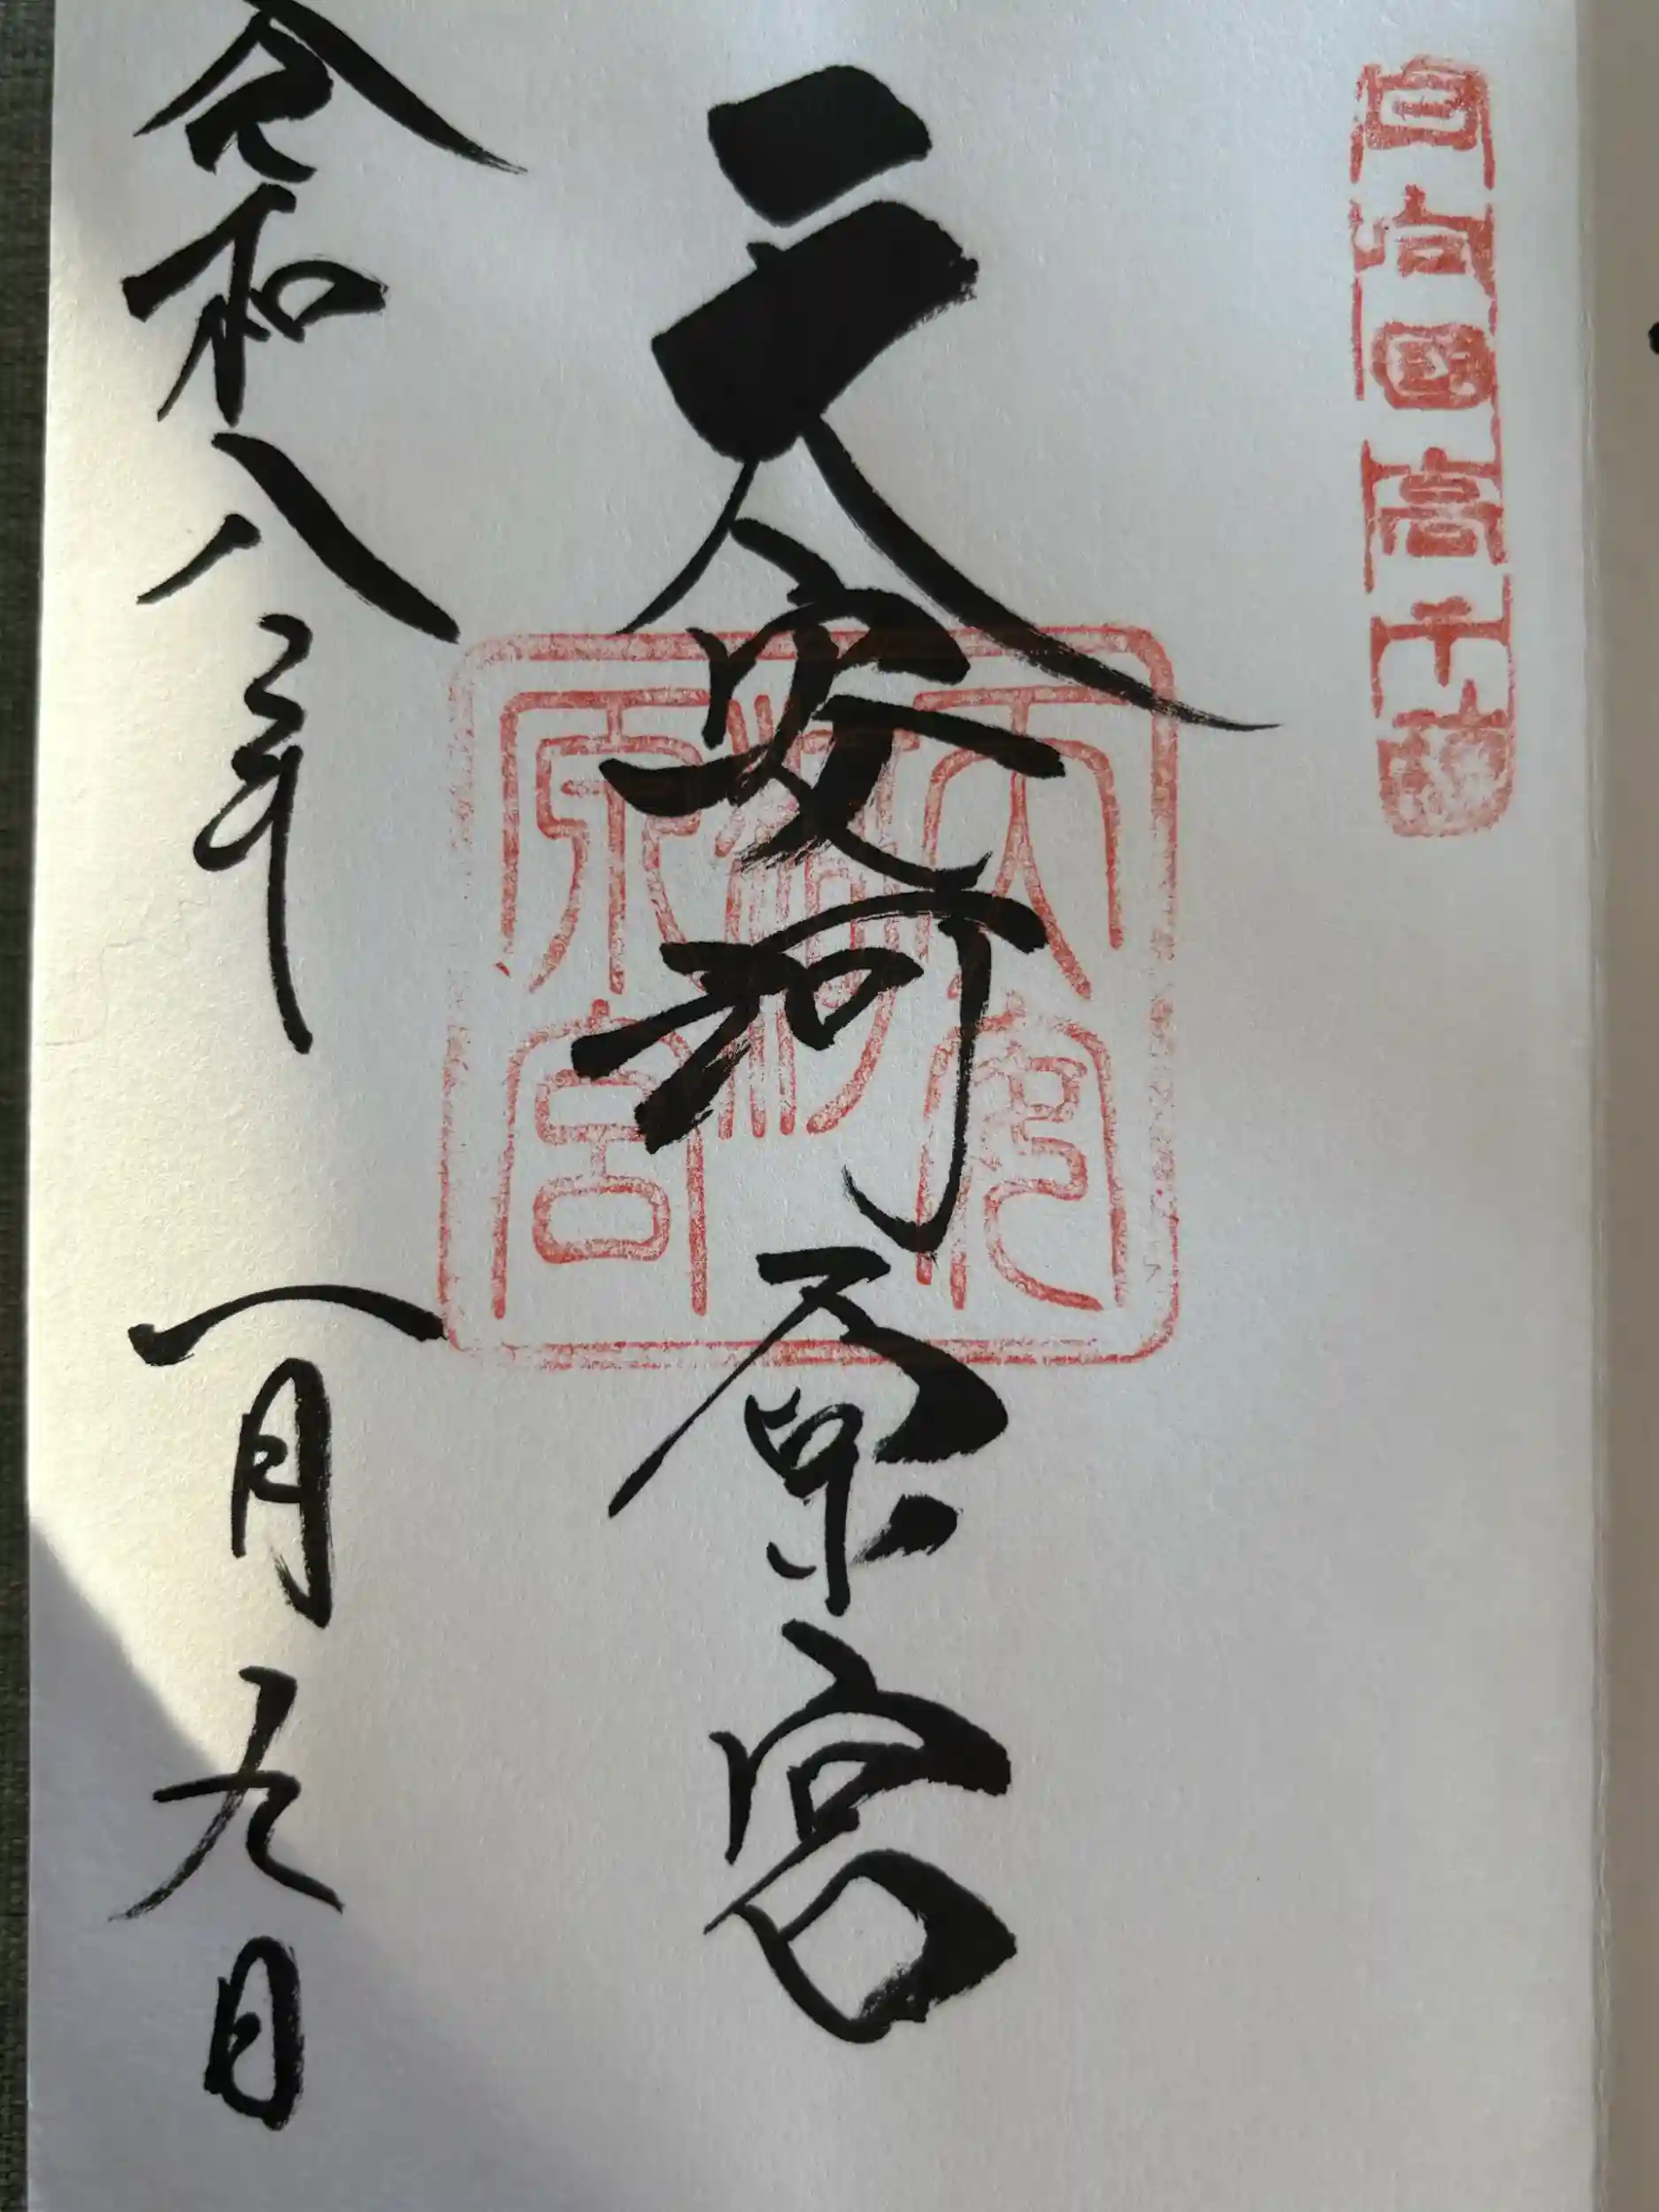 日向國高千穂
天安河原宮
天安河原宮
令和八年
一月九日